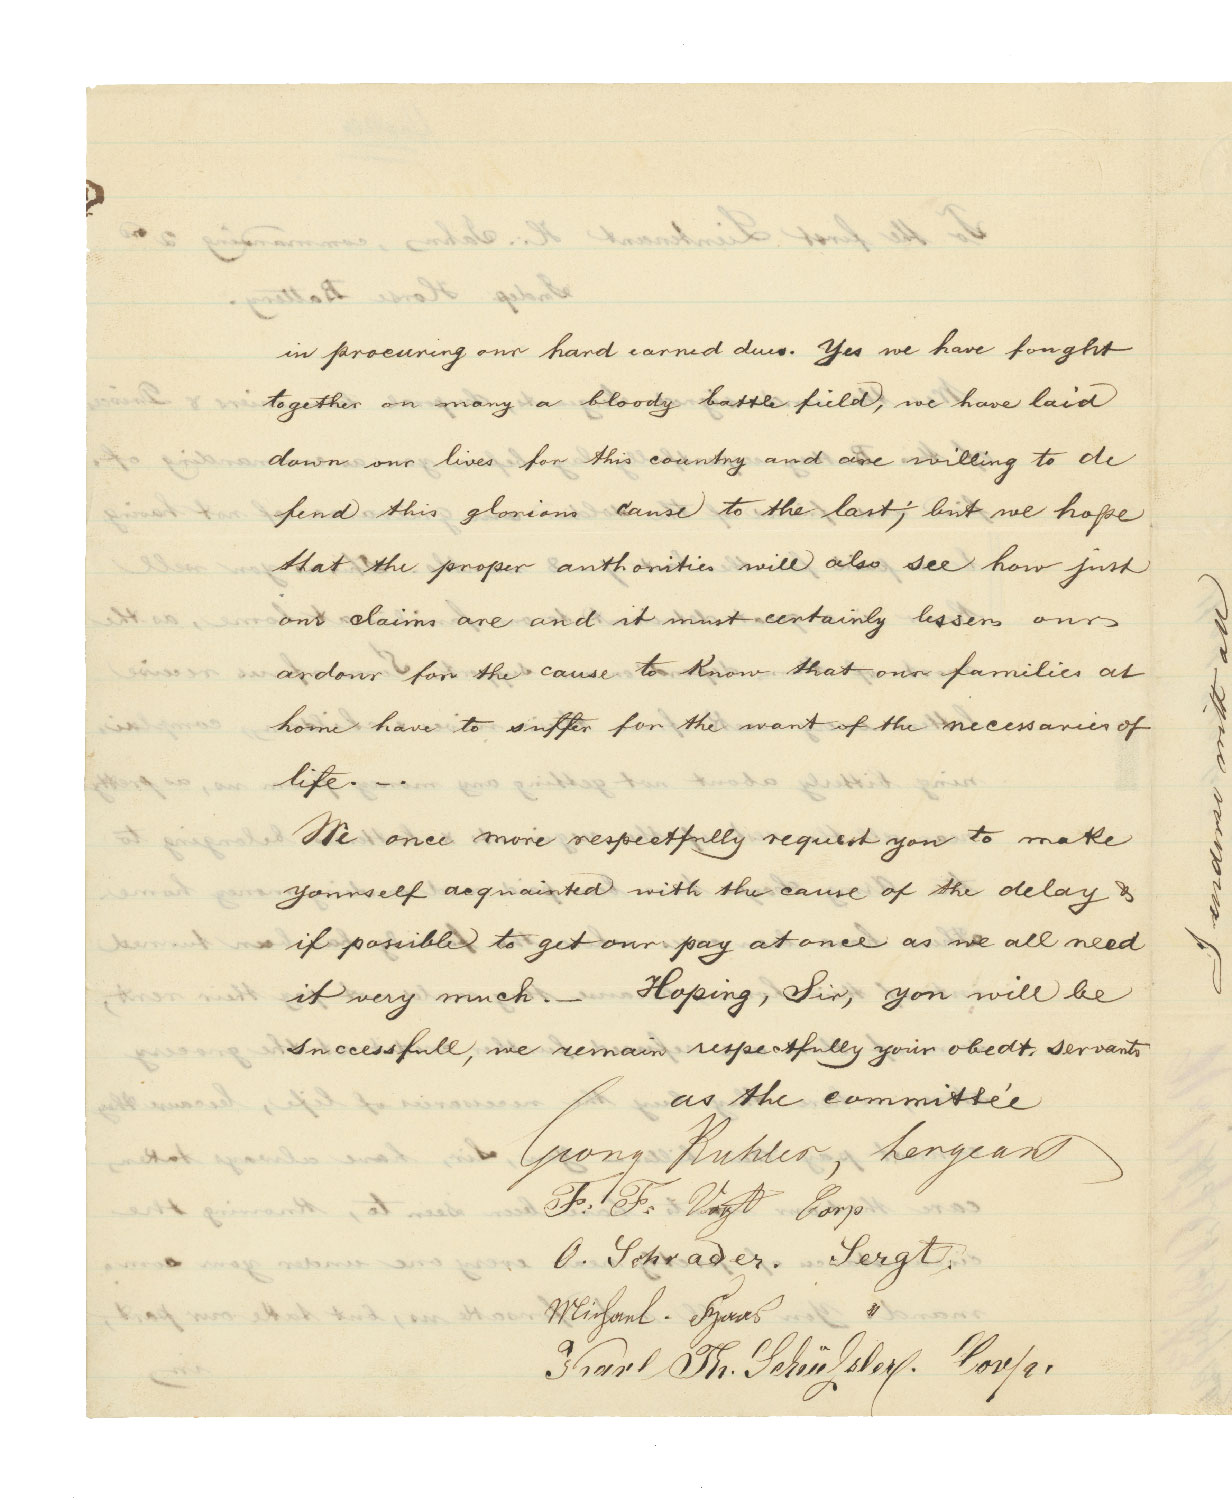 in procuring our hard earned dues. Yes we have fought
together on many a bloody battle field, we have laid
down our lives for this country and are willing to de
fend this glorious cause to the last; but we hope
that the proper authorities will also see how just
our claims are and it must certainly lessen our
ardour for the cause to know that our families at
home have to suffer for the want of the necessaries of
life. -.
We once more respectfully request you to make
yourself acquainted with the cause of the delay &
if possible to get our pay at once as we all need
it very much. — Hoping, Sir, you will be
successfull, we remain respectfully your obedt. servants
as the committée
Georg Ruhler, Sergeant
F. F. Vogt Corp
O. Schrader. Sergt.
Michael. Haas "
Karl Th. Schüßler. Corp.
I endorse with all